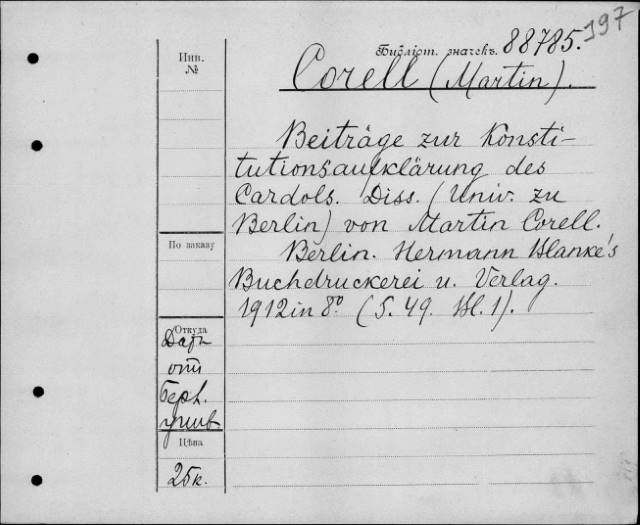 397
Библіот. значекъ. 88785.
Инв. №
Corell (Martin).
Beiträge zur Konsti-
tutionsaufklärung des
Cardols. Diss. (Univ. zu
Berlin) von Martin Corell.
По заказу
Berlin. Hermann Blanke's
Buchdruckerei u. Verlag.
1912 in 8° (S. 49. Bl. 1).
Откуда
Даръ
отъ
Берл.
унив
Цѣна
25к.